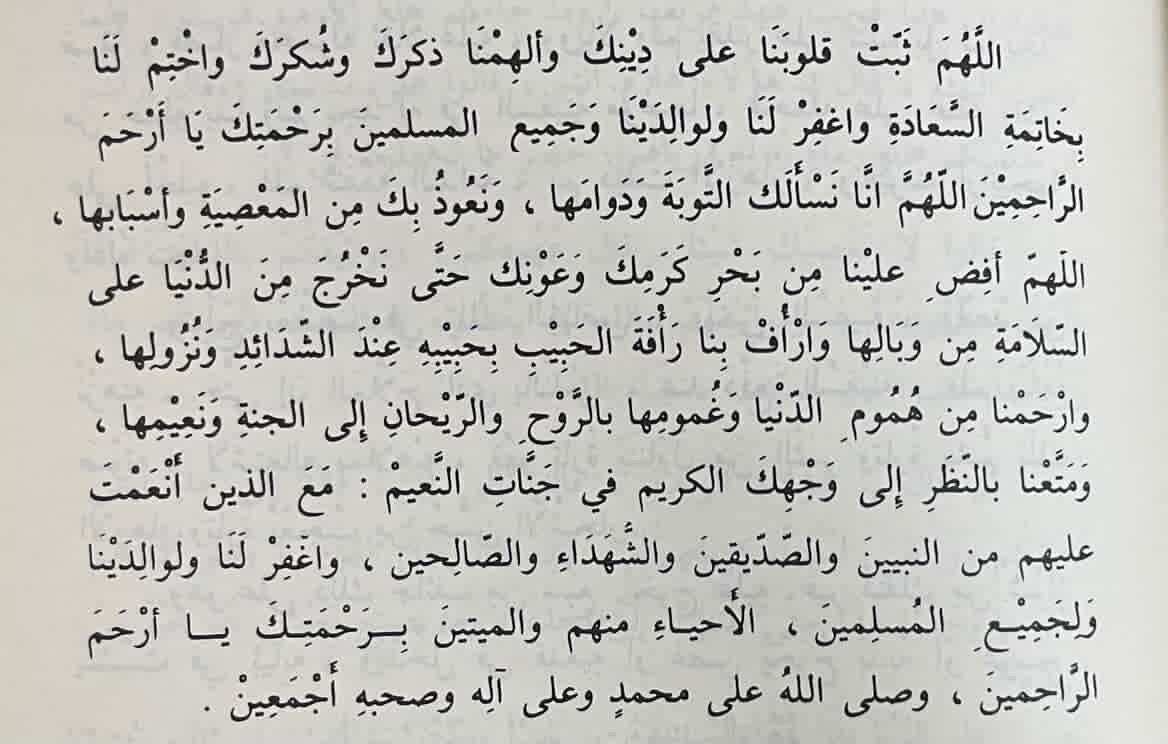 اللَّهُمَ ثَبّتْ قلوبَنَا على دِيْنِكَ وألهِمْنَا ذكرَكَ وشُكرَكَ واخْتِمْ لَنَا
بِخَاتِمَةِ السَّعَادَةِ واغفِرْ لَنَا ولوالِدَيْنَا وَجَمِيع المسلمينَ بِرَحْمَتِكَ يَا أَرْحَمَ
الرَّاحِمِيْنَ اللّهُمَّ انَّا نَسْأَلَك التَّوبَةَ وَدَوامَها ، وَنَعُوذُ بِكَ مِن المَعْصِيَةِ وأسْبَابها ،
اللَهمّ أفِض ِ عليْنا مِن بَحْرِ كَرَمِكَ وَعَوْنِك حَتَّى نَخْرُجَ مِنَ الدُّنْيَا على
السّلَامَةِ مِن وَبَالِها وَارْأُفْ بِنا رَأْفَةَ الحَبِيْبِ بِحَبِيْبِهِ عِنْدَ الشّدَائِدِ وَنُزُولِها ،
وارْحَمْنا مِن هُمُوم ِ الدّنْيا وَغُمومِها بالرَّوْح ِ والرّيْحانِ إِلى الجنةِ وَنَعِيْمِها ،
وَمَتَّعْنا بالنّظَرِ إِلى وَجْهِكَ الكريم في جَنَّاتِ النَّعيمْ : مَعَ الذين أَنْعَمْتَ
عليهم من النبيينَ والصّدّيقينَ والشُّهَدَاءِ والصّالِحين ، واغْفِرْ لَنَا ولوالِدَيْنَا
وَلِجَمِيْع ِ المُسلِمينَ ، الأَحياءِ منهم والميتينَ بِرَحْمَتِكَ يا أرْحَمَ
الرَّاحِمينَ ، وصلى اللهُ على محمدٍ وعلى آلِه وصحبهِ أَجْمَعِينْ .